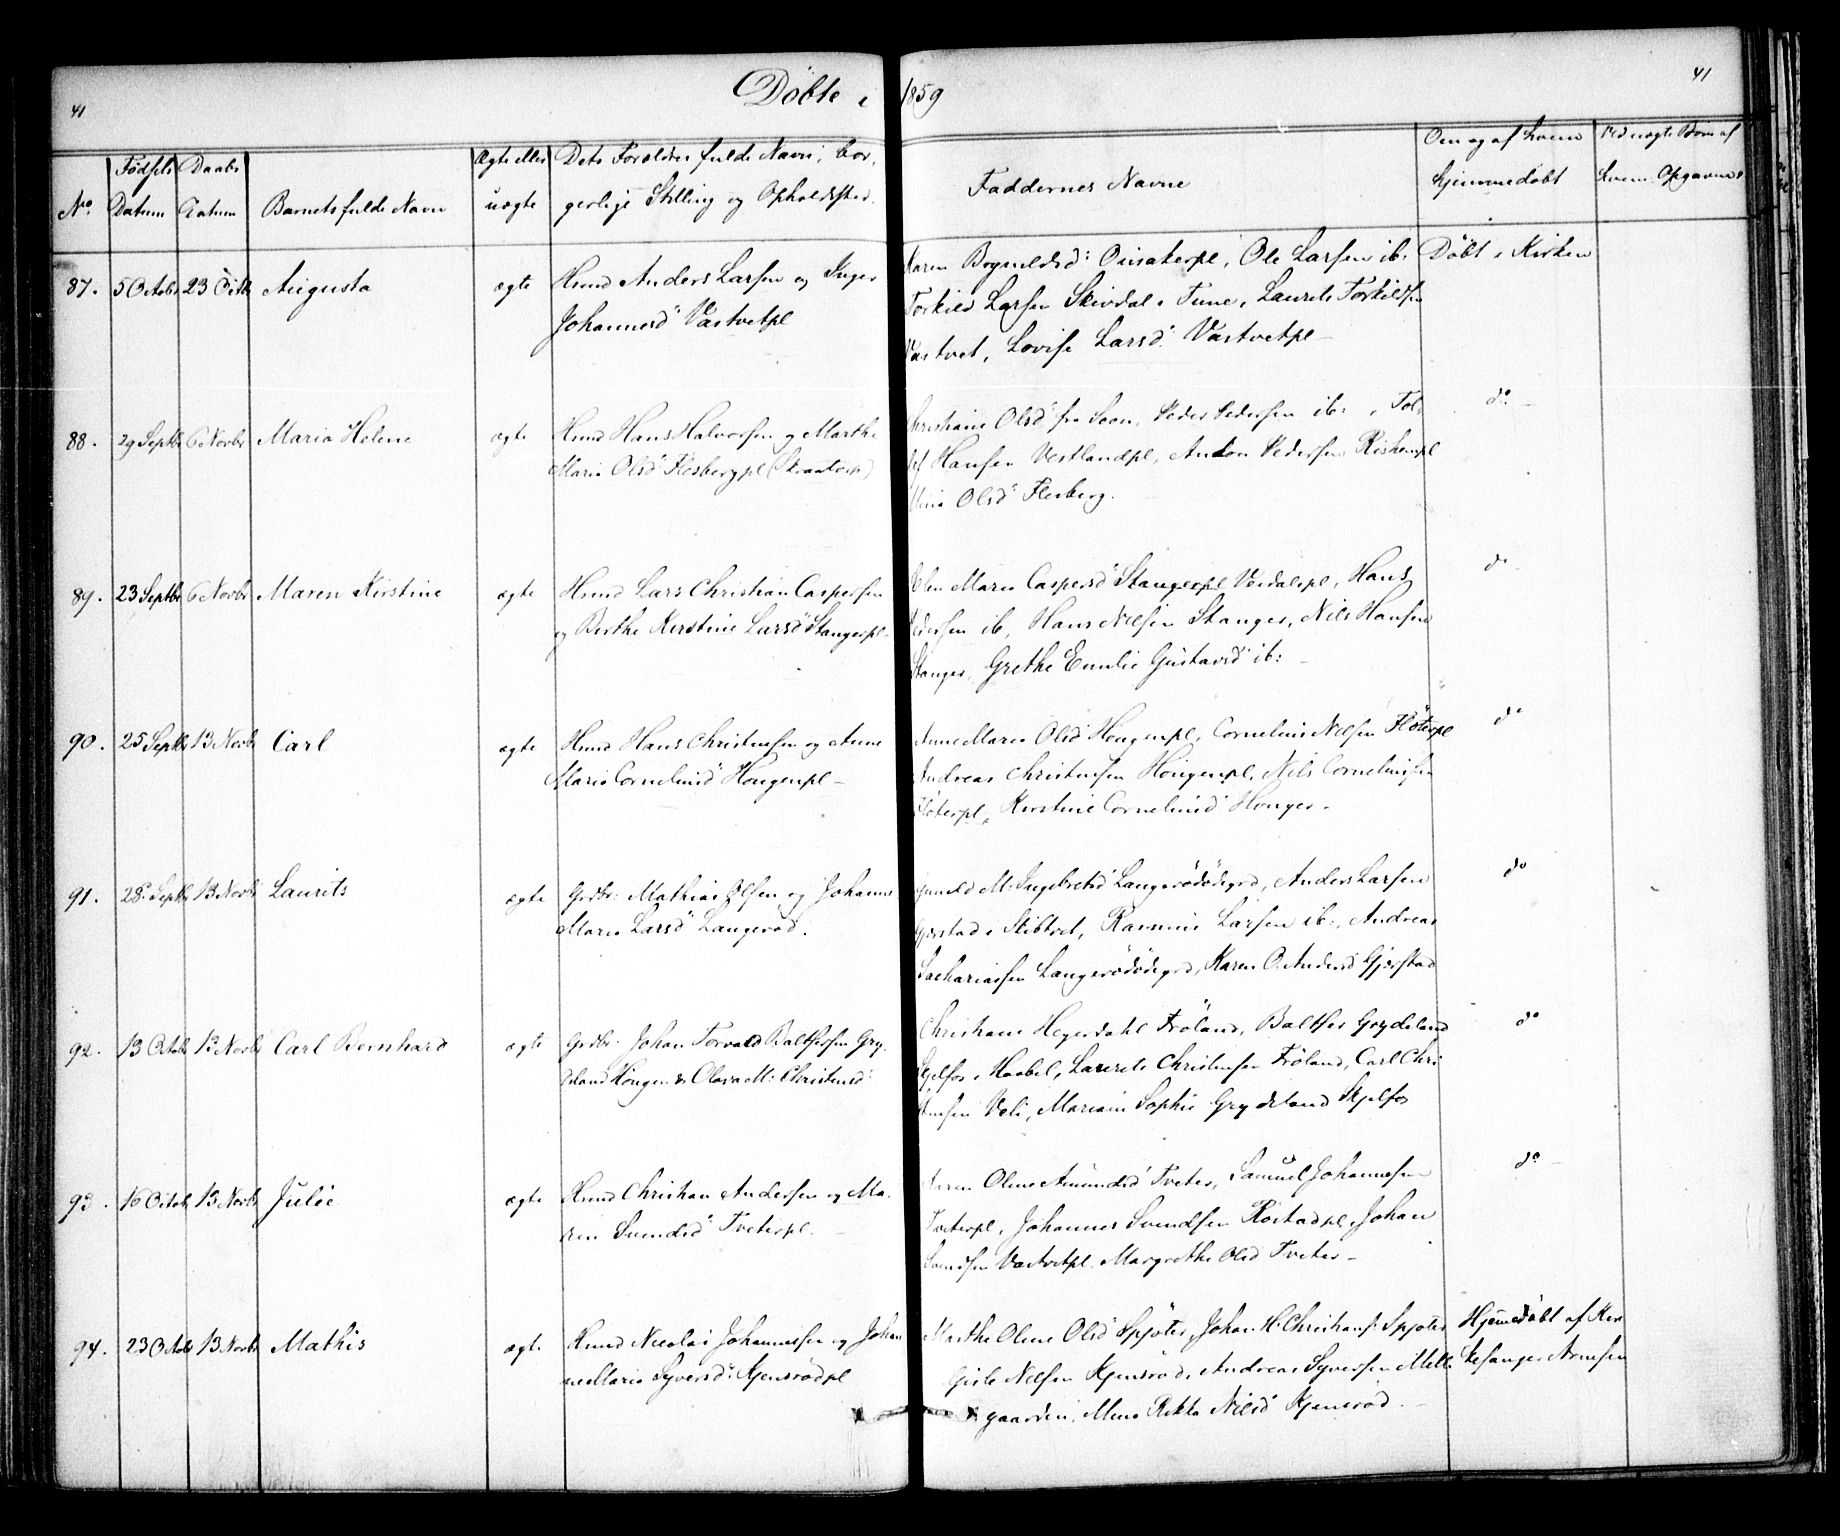 41
Döbte i 1859
41
No.
Födsels Datum
Daabs Datum
Barnets fulde Navn
Ægte eller uægte
Dets Forældres fulde Navn, bor-
gerlige Stilling og Opholdssted.
Faddernes Navne
Om og af hvem
hjemmedöbt
Ved uægte Börn af
hvem Opgavnes
87. 5 Octobr 23 Octb Augusta ægte Hmd Anders Larsen og Inger
Johannesd: Vastvetpl
Karen Ole Larsen ib.
Torkild Larsen Skivdal i Tune, Laurits Torkildsen
Vastvet, Lovise Larsd: Vastvetpl
Döbt i Kirken
88. 29 Septbr 6 Novbr Maria Helene ægte Hmd Hans Halvorsen og Marthe
Maria Olsd: Flesbergpl
Christiane Olsd: fra Soon, Peder Pedersen ib:, Tol-
lef Hansen Vestlandpl, Anton Pedersen
Olsd: Flesberg.
do
89. 23 Septbr 6 Novbr Maren Kirstine ægte Hmd Lars Christian Caspersen
og Berthe Kirstine Larsd: Stangerpl
Maria Caspersd: Stangerpl Hans
Pedersen ib, Hans Nilsen Stanger, Nils Hansen
Stanger, Grethe Emilie Gustavsd: ib:
do
90. 25 Septbr 13 Novbr Carl ægte Hmd Hans Christensen og Anne
Maria Corneliusd: Hougenpl
Anne Maria Olsd: Hougenpl, Cornelius Nilsen Flöterpl
Andreas Christensen Hougenpl, Nils Corneliussen
Flöterpl, Kirstine Corneliusd: Hougen
do
91. 28 Septbr 13 Novbr Laurits ægte Grdbr: Mathias Olsen og Johanne
Maria Larsd: Langeröd.
Gunild M: Ingebretsd: Langerödödegrd, Anders Larsen
Gjerstad i Skibtvet, Rasmus Larsen ib:, Andreas
Sachariassen Langerödödegrd, Karen O. Andersd: Gjerstad
do
92. 13 Octobr 13 Novbr Carl Bernhard ægte Grdbr: Johan Torvald Balthersen Gry-
deland Hougen & Olava M: Christensd:
Christiane Heyerdahl Fröland, Balther Grydeland
Skjelfos i Haabel, Laurits Christensen Fröland, Carl Chri-
stensen Vold, Mariam Sophie Grydeland Skjelfos
do
93. 16 Octobr 13 Novbr Julie ægte Hmd Christian Andersen og Ma-
ren Svendsd: Tveterpl.
Karen Oline Amundsd: Tveter, Samuel Johannesen
Tveterpl, Johannes Svendsen Röstadpl, Johan
Svendsen Vastvetpl, Margrethe Olsd: Tveter
do
94. 23 Octobr 13 Novbr Mathis ægte Hmd Nicolai Johannessen og Johan-
ne Maria Syversd: Kjensrödpl
Marthe Oline Olsd: Spjöter, Johan H. Christians: Spjöter
Gisle Nilsen Kjensröd, Andreas Syversen Melle-
gaarden, Rikka Nilsd: Kjensröd
Hjemedöbt af Kir-
kesanger Arnesen